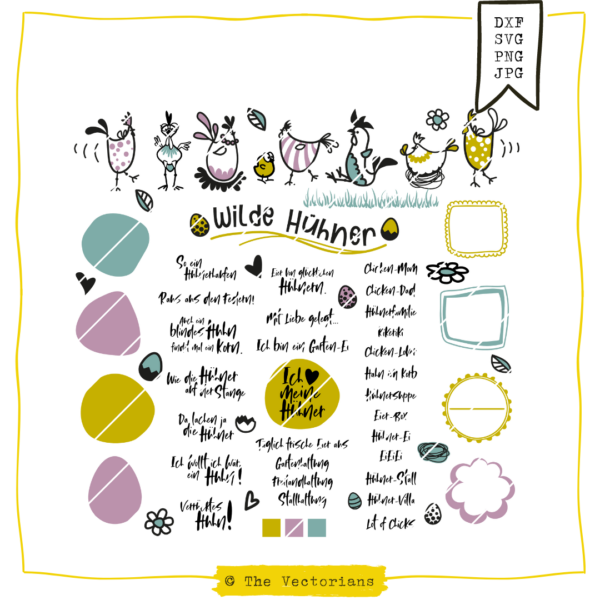 DXF
SVG
PNG
JPG
Wilde Hühner
So ein
Hühnerhaufen
Raus aus den Federn!
Auch ein
blindes Huhn
findet mal ein Korn.
Wie die Hühner
auf der Stange
Da lachen ja
die Hühner
Ich wollt ich wär
ein Huhn!
Verrücktes
Huhn!
Eier von glücklichen
Hühnern.
Mit Liebe gelegt...
Ich bin ein Garten-Ei
Ich
meine
Hühner
Täglich frische Eier aus
Gartenhaltung
Freilandhaltung
Stallhaltung
Chicken-Mom
Chicken-Dad
Hühnerfamilie
Kikeriki
Chicken-Love
Hahn im Korb
Hühnersuppe
Eier-Box
Hühner-Ei
EiEiEi
Hühner-Stall
Hühner-Villa
Lot of Chicks
© The Vectorians